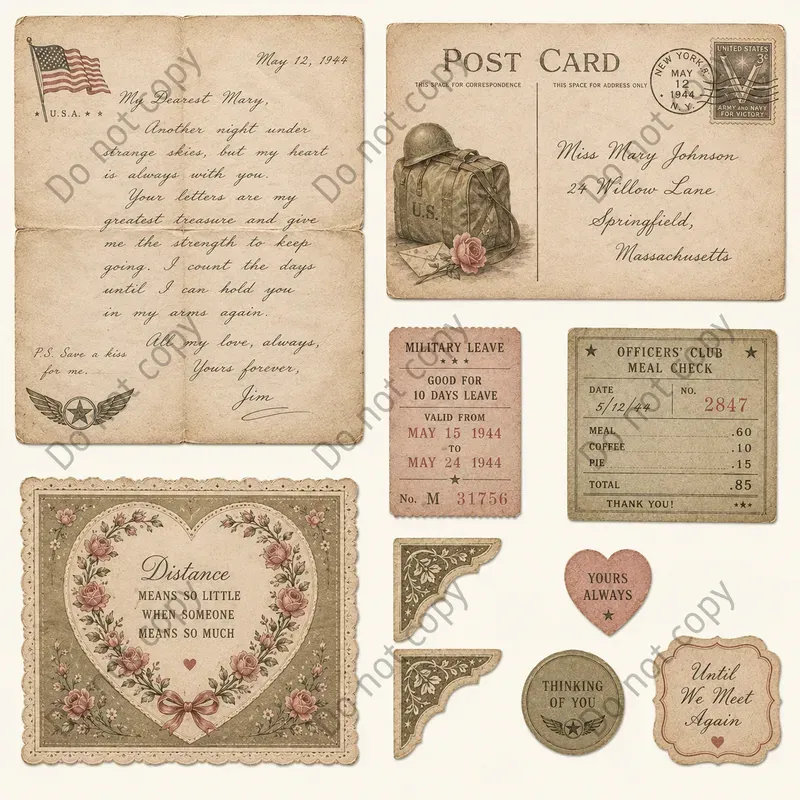 May 12, 1944
★ U.S.A. ★ ★
My Dearest Mary,
Another night under
strange skies, but my heart
is always with you.
Your letters are my
greatest treasure and give
me the strength to keep
going. I count the days
until I can hold you
in my arms again.
All my love, always,
Yours forever,
Jim
P.S. Save a kiss
for me...
POST CARD
THIS SPACE FOR CORRESPONDENCE
THIS SPACE FOR ADDRESS ONLY
NEW YORK
MAY
12
1944
N.Y.
UNITED STATES
3¢
ARMY AND NAVY
FOR VICTORY
U.S.
Miss Mary Johnson
24 Willow Lane
Springfield,
Massachusetts
MILITARY LEAVE
★ ★ ★
GOOD FOR
10 DAYS LEAVE
VALID FROM
MAY 15 1944
TO
MAY 24 1944
★
No. M 31756
★ OFFICERS' CLUB ★
MEAL CHECK
DATE 5/12/44 NO. 2847
MEAL .60
COFFEE .10
PIE .15
TOTAL .85
THANK YOU! ★★★
Distance
MEANS SO LITTLE
WHEN SOMEONE
MEANS SO MUCH
YOURS
ALWAYS
★
THINKING
OF YOU
Until
We Meet
Again
Do not copy
Do not copy
Do not copy
Do not copy
Do not copy
Do not copy
Do not copy
Do not copy
Do not copy